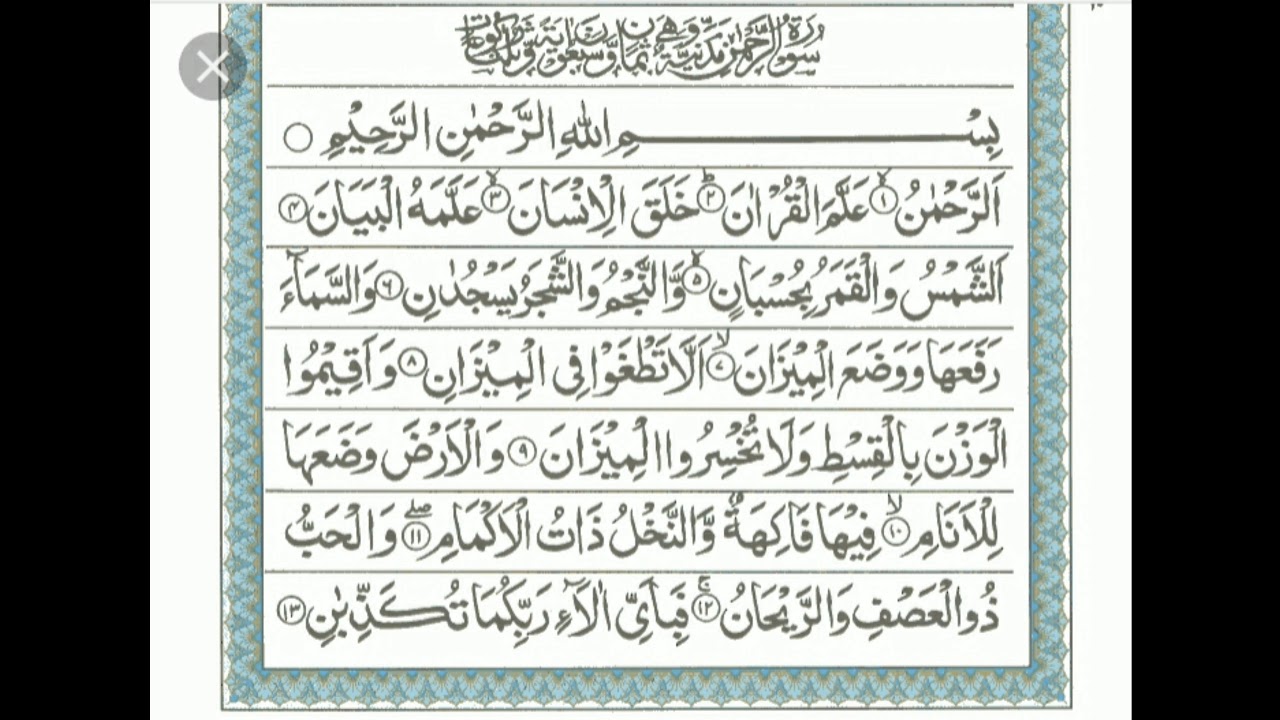 سُوْرَةُ الرَّحْمٰنِ مَدَنِيَّةٌ وَّهِيَ ثَمَانٌ وَّسَبْعُوْنَ اٰيَةً وَّثَلٰثُ رُكُوْعَاتٍ
بِسْمِ اللّٰهِ الرَّحْمٰنِ الرَّحِيْمِ ۝
اَلرَّحْمٰنُ ۙ﴿۱﴾ عَلَّمَ الْقُرْاٰنَ ؕ﴿۲﴾ خَلَقَ الْاِنْسَانَ ۙ﴿۳﴾ عَلَّمَهُ الْبَيَانَ ﴿۴﴾
اَلشَّمْسُ وَالْقَمَرُ بِحُسْبَانٍ ۙ﴿۵﴾ وَّالنَّجْمُ وَالشَّجَرُ يَسْجُدٰنِ ﴿۶﴾ وَالسَّمَآءَ
رَفَعَهَا وَوَضَعَ الْمِيْزَانَ ۙ﴿۷﴾ اَلَّا تَطْغَوْا فِى الْمِيْزَانِ ﴿۸﴾ وَاَقِيْمُوا
الْوَزْنَ بِالْقِسْطِ وَلَا تُخْسِرُوا الْمِيْزَانَ ﴿۹﴾ وَالْاَرْضَ وَضَعَهَا
لِلْاَنَامِ ۙ﴿۱۰﴾ فِيْهَا فَاكِهَةٌ وَّالنَّخْلُ ذَاتُ الْاَكْمَامِ ۖ﴿۱۱﴾ وَالْحَبُّ
ذُو الْعَصْفِ وَالرَّيْحَانُ ۚ﴿۱۲﴾ فَبِاَىِّ اٰلَآءِ رَبِّكُمَا تُكَذِّبٰنِ ﴿۱۳﴾